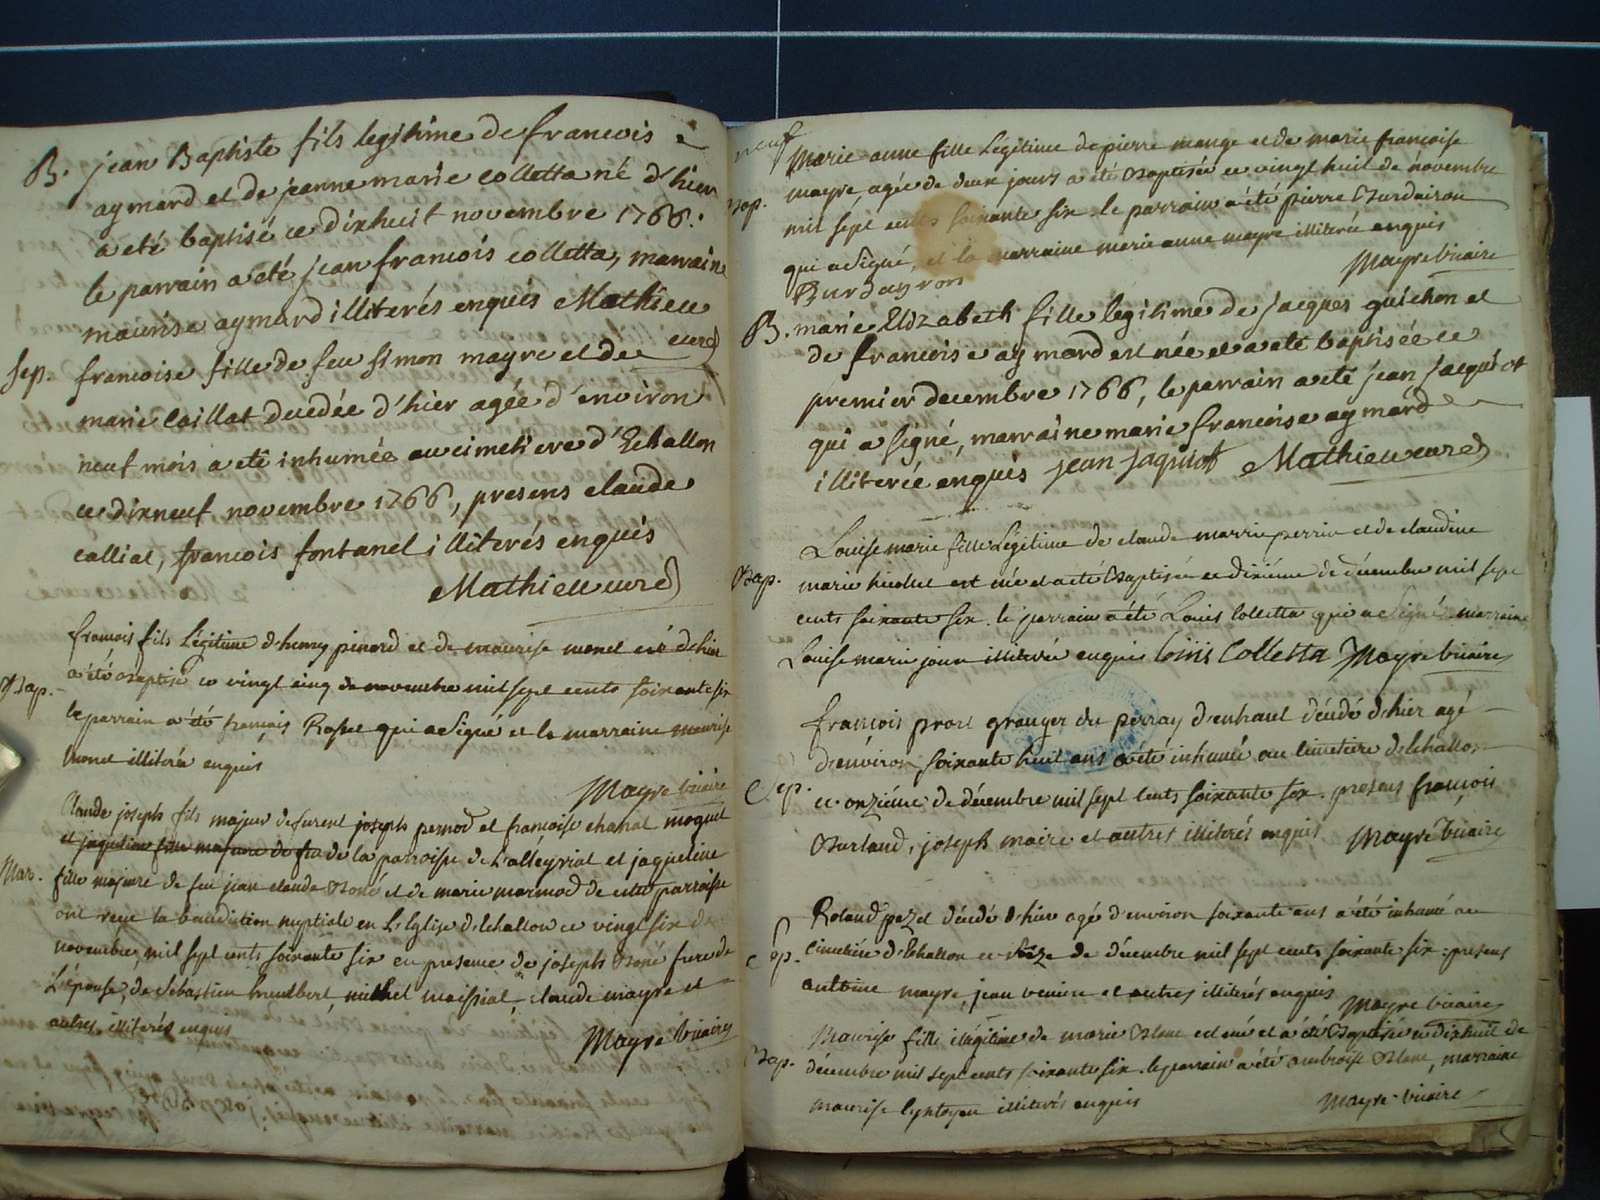 B. jean Baptiste fils legitime de francois
aymard et de jeanne marie colletta né d'hier
a eté baptisé ce dixhuit novembre 1766.
le parrain a eté jean francois colletta, marraine
maurise aymard illiterés enquis Mathieu
curé
Sep. francoise fille de feu simon mayre et de
marie caillat decedée d'hier agée d'environ
neuf mois a eté inhumée au cimetiere d'Echallon
ce dixneuf novembre 1766, presens claude
calliat, francois fontanel illiterés enquis
Mathieu curé
francois fils Légitime d'henry pinard et de maurise monet né d'hier
Bap. a été Baptisé ce vingt cinq de novembre mil sept cents soixante six
le parrain a été françois Rosset qui a Signé et la marraine maurise
monet illiterée enquis
Mayre vicaire
Claude joseph fils majeur de furent joseph pernod et francoise chanal moquet
et jaqueline fille majeure de feu de la paroisse de Lalleyriat et jaqueline
Mar. fille majeure de feu jean claude Boné et de marie marmod de cette parroisse
ont reçu la benediction nuptiale en L'Eglise d'Echallon ce vingt six de
novembre mil sept cents soixante six en presence de joseph Boné frere de
L'épouse, de Sébastien humbert, michel maissiat, claude mayre et
autres illiterés enquis
Mayre vicaire
neuf
Marie anne fille Légitime de pierre mange et de marie françoise
Bap. mayre, agée de deux jours a été Baptisée ce vingt huit de novembre
mil sept cents soixante six. le parrain a été pierre Burdairon
qui a Signé, et la marraine marie anne mayre illiterée enquis
Burdayron Mayre vicaire
B. marie Elizabeth fille legitime de jacques guichon et
de francoise aymard est née et a eté baptisée ce
premier decembre 1766, le parrain a eté jean jacquiot
qui a signé, marraine marie francoise aymard
illiterée enquis jean jaquiot Mathieu curé
Louise marie fille Légitime de claude marrin perrin et de claudine
Bap. marie nicollet est née et a été Baptisée ce dixiéme de décembre mil sept
cents soixante six. le parrain a été Louis Colletta qui a Signé marraine
Louise marie jour illiterée enquis louis Colletta Mayre vicaire
francois prost granger du perray d'enhaut décédé d'hier agé
d'environ soixante huit ans a été inhumé au cimetiere d'Echallon
Sep. ce onziéme de décembre mil sept cents soixante six. presens françois
Burlaud, joseph maire et autres illiterés enquis Mayre vicaire
Roland pezet décédé d'hier agé d'environ soixante ans a été inhumé au
Sep. cimetiére d'Echallon ce seize de décembre mil sept cents soixante six. presens
antoine mayre, jean et autres illiterés enquis
Mayre vicaire
Maurise fille illégitime de marie Blanc est née et a été Baptisée ce dixhuit de
Bap. décembre mil sept cents soixante six. le parrain a été ambroise Blanc, marraine
maurise illiterés enquis Mayre vicaire